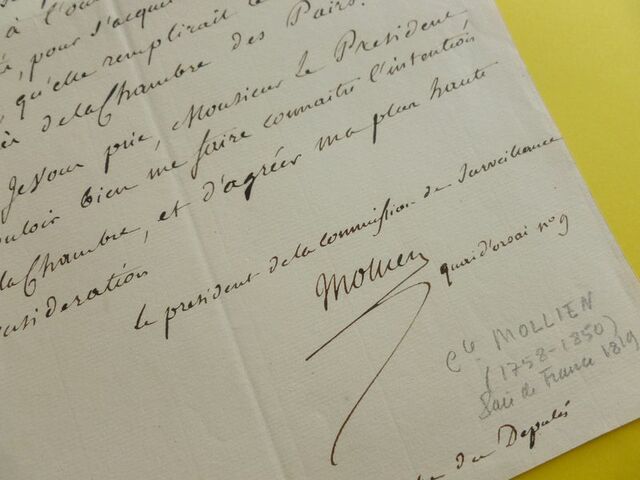 à l'
, pour s'acqui
, qu'elle remplirait le
de la Chambre des Pairs.
Je vous prie, Monsieur le President
ouloir bien me faire connaitre l'intention
la Chambre, et d'agréer ma plus haute
onsideration
le president de la Commission de Surveillance
Mollien
quai d'orsai no 9
Cte MOLLIEN
(1758-1850)
Pair de France 1819
des Deputés